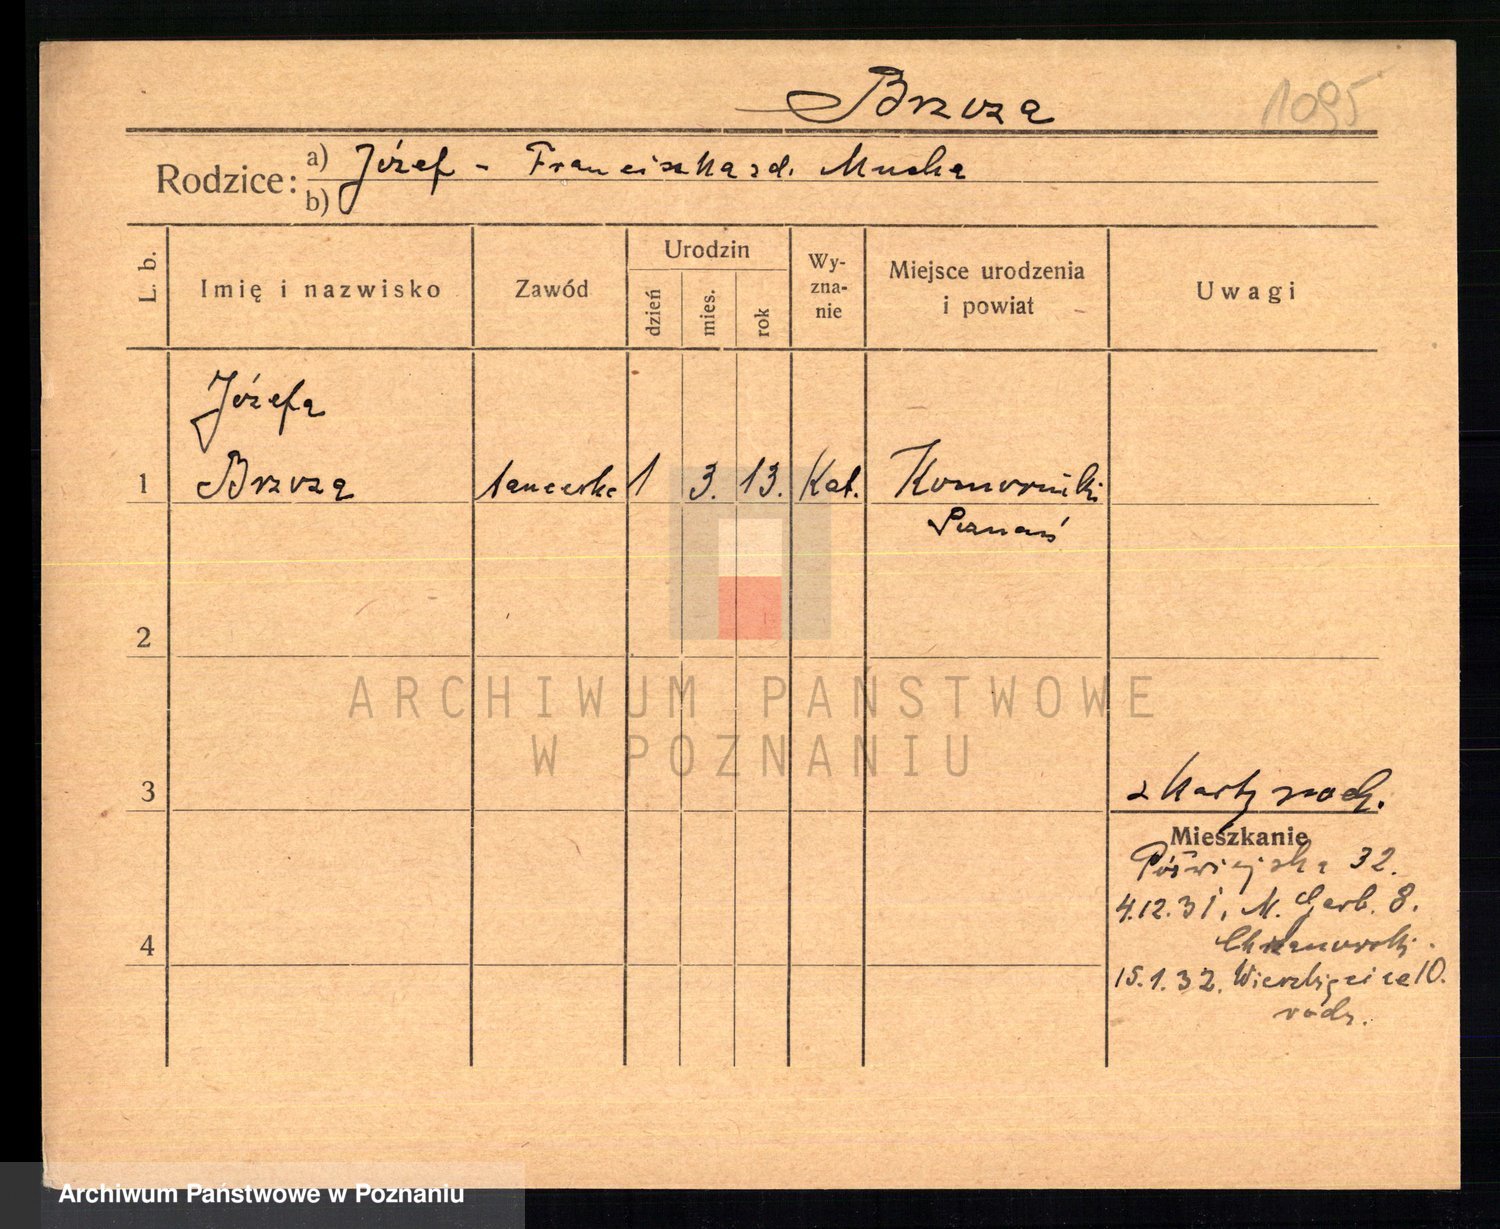 Brzoza
1095
Rodzice: a) Józef - Franciszka zd. Mucha
b)
L. b.
Imię i nazwisko
Zawód
Urodzin
dzień
mies.
rok
Wy-
zna-
nie
Miejsce urodzenia
i powiat
Uwagi
Józefa
1 Brzoza 1 3. 13. Kat. Komorniki
Poznań
2
ARCHIWUM PAŃSTWOWE
W POZNANIU
3 z karty rodz.
Mieszkanie
Półwiejska 32.
4.12.31. M. Garb. 8.
4
15.1.32. Wierzbięcice 10.
rodz.
Archiwum Państwowe w Poznaniu